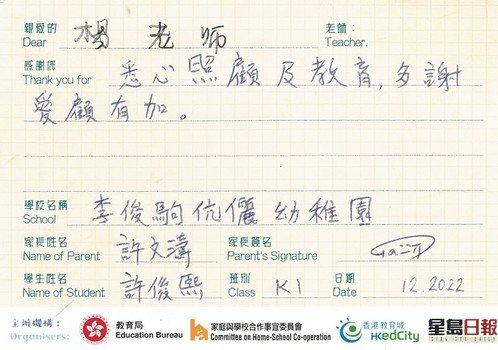 親愛的 楊老師 老師:
Dear Teacher,
感謝您
Thank you for 悉心照顧及教育,多謝
愛顧有加。
學校名稱
School 李俊駒伉儷幼稚園
家長姓名 許文濤 家長簽名
Name of Parent Parent's Signature
學生姓名 許俊熙 班別 K1 日期 12.2022
Name of Student Class Date
主辦機構: 教育局 家庭與學校合作事宜委員會 香港教育城 星島日報
Organisers: Education Bureau Committee on Home-School Co-operation HKedCity